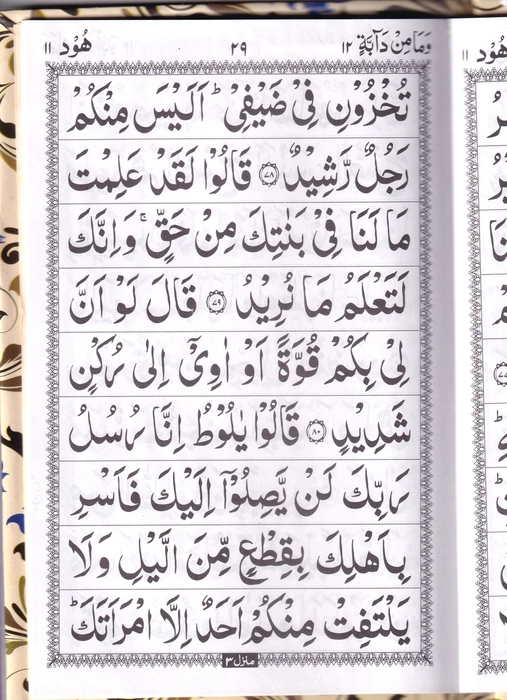 وَمَا مِنْ دَآبَّةٍ ١٢ ٢٩ هُوْد ١١
تُخْزُوْنِ فِىْ ضَيْفِىْ ؕ اَلَيْسَ مِنْكُمْ
رَجُلٌ رَّشِيْدٌ ﴿٧٨﴾ قَالُوْا لَقَدْ عَلِمْتَ
مَا لَنَا فِىْ بَنٰتِكَ مِنْ حَقٍّ ۚ وَاِنَّكَ
لَتَعْلَمُ مَا نُرِيْدُ ﴿٧٩﴾ قَالَ لَوْ اَنَّ
لِىْ بِكُمْ قُوَّةً اَوْ اٰوِىْۤ اِلٰى رُكْنٍ
شَدِيْدٍ ﴿٨٠﴾ قَالُوْا يٰلُوْطُ اِنَّا رُسُلُ
رَبِّكَ لَنْ يَّصِلُوْۤا اِلَيْكَ فَاَسْرِ
بِاَهْلِكَ بِقِطْعٍ مِّنَ الَّيْلِ وَلَا
يَلْتَفِتْ مِنْكُمْ اَحَدٌ اِلَّا امْرَاَتَكَ ؕ
منزل ٣
هُوْد ١١